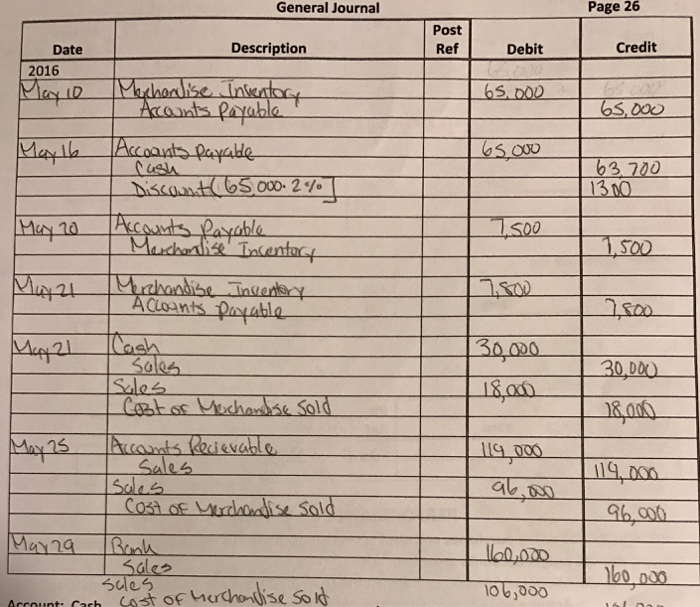 General Journal Page 26
Date Description Post Ref Debit Credit
2016
May 10 Merchandise Inventory 65,000
Accounts Payable 65,000
May 16 Accoonts Payable 65,000
Cash 63,700
Discount (65,000. 2%] 1300
May 20 Accounts Payable 7,500
Merchandise Incentory 7,500
May 21 Merchandise Inventory 7,800
Accounts payable 7,800
May 21 Cash 30,000
Sales 30,000
Sales 18,000
Cost of Merchandise Sold 18,000
May 25 Accounts Recievable 119,000
Sales 119,000
Sales 96,000
Cost of Merchandise sold 96,000
May 29 Bank 160,000
Sales 160,000
Sales 106,000
Account: Cash Cost of Merchandise Sold